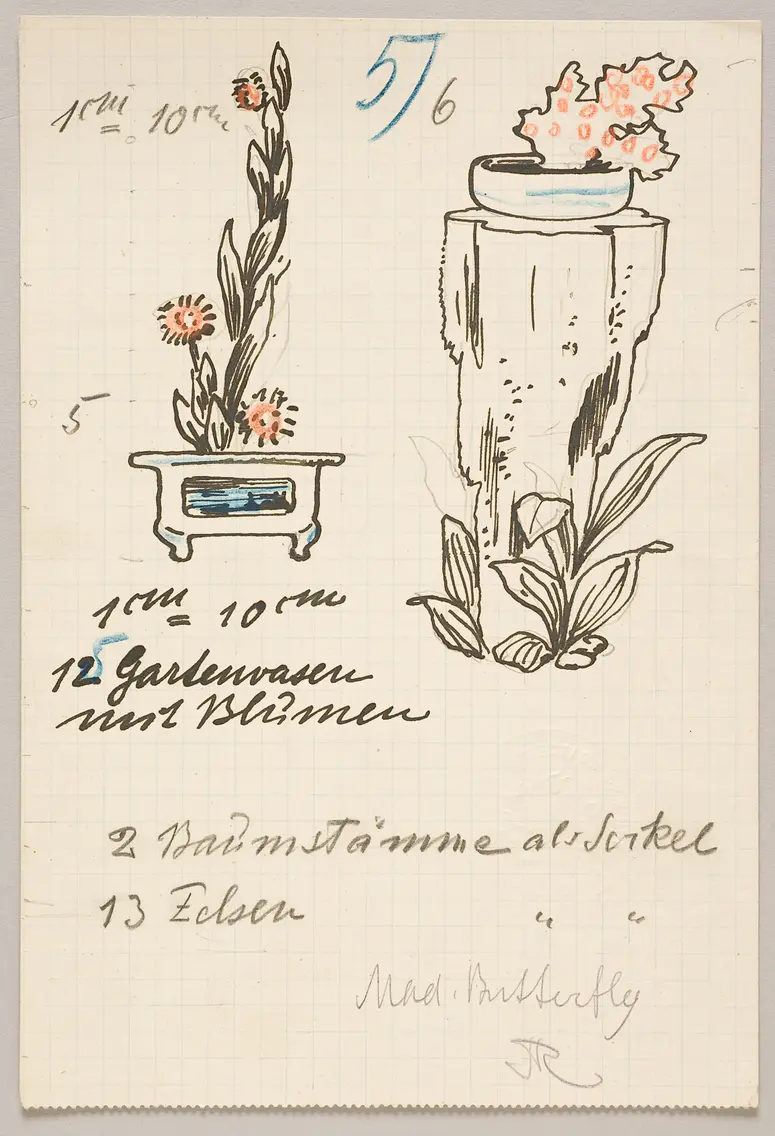 5) 6
1cm = 10cm
5
1cm = 10cm
15 Gartenvasen
mit Blumen
2 Baumstämme als Sockel
13 Felsen " "
Mad. Butterfly